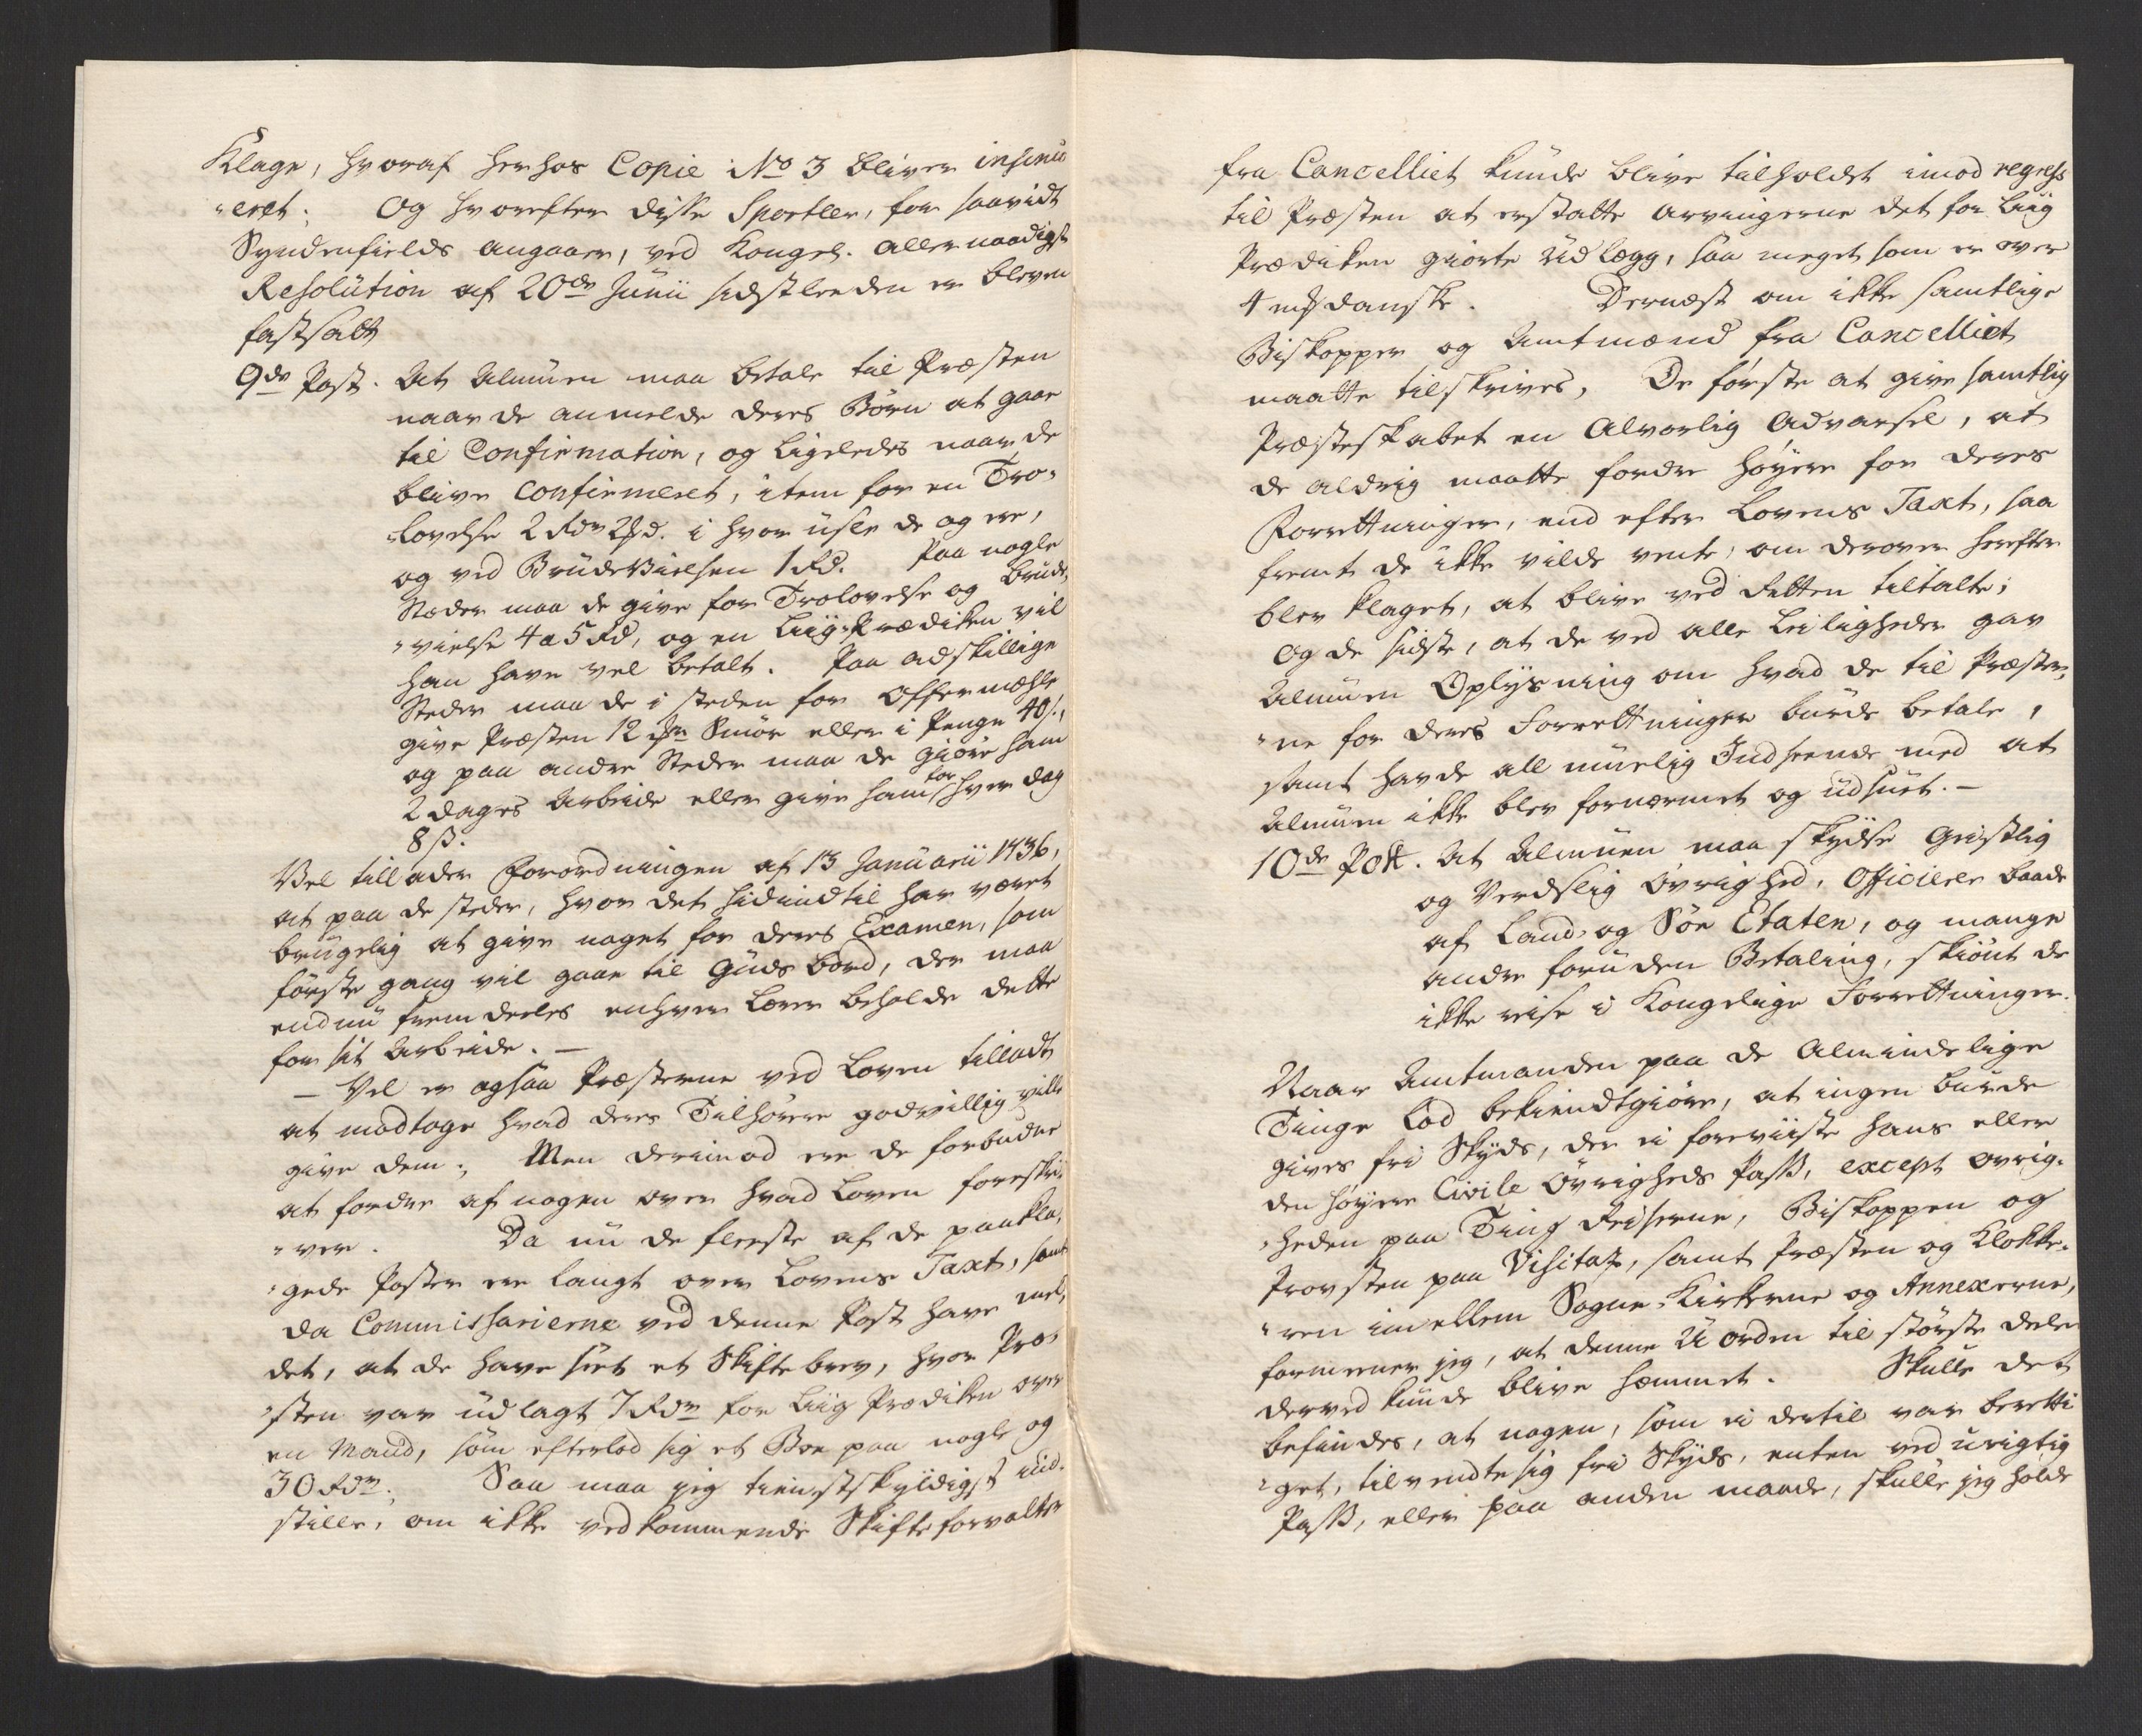 Klage, hvoraf herhos Copie No 3 bliver insinu
"eret: Og hvorefter disse Sportler, for saavidt
Syndenfields angaaer, ved Kongel. allernaadigst
Resolution af 20de Junii sidstleeden er bleven
fastsatt
9de Post. At Almuen maa betale til Præsten
naar de anmelde deres Börn at gaae
til Confirmation, og ligeledes naar de
blive Confirmeret, item for en Tro-
"lovelse 2 Rdr i hvor usle de og ere,
og ved BrudeVielsen 1 Rd. Paa nogle
Steder maa de give for Trolovelse og Brude
"vielse 4 a 5 Rd, og en Liig-Prædiken vil
han have vel betalt. Paa adskillige
Steder maa de i steden for Offermæhle
give Præsten 12 Smör eller i Penge 40 s.,
og paa andre Steder maa de giöre ham
2 dages Arbeide eller give ham for hver dag
8 s.
Vel tillader Forordningen af 13 Januarii 1736,
at paa de steder, hvor det hidindtil har været
brugelig at give noget for deres Examen, som
förste gang vil gaae til Guds bord, der maa
endnu fremdeeles enhver Lærer beholde dette
for sit Arbeide. —
— Vel er ogsaa Præsterne ved Loven tilladt
at modtage hvad deres Tilhörere godvillig ville
give dem; Men derimod ere de forbudne
at fordre af nogen over hvad Loven foreskri-
"ver. Da nu de fleeste af de paakla-
"gede Poster ere langt over Lovens Taxt, samt
da Commissarierne ved denne Post have mel-
det, at de have seet et Skiftebrev, hvor Præ-
"sten var udlagt 7 Rdr for Liig Prædiken over
en Mand, som efterlod sig et Boe paa nogle og
30 Rdr; Saa maa jeg tienstskyldigst ind-
stille, om ikke vedkommende Skifteforvalter
fra Cancelliet kunde blive tilholdet imod regress
til Præsten at erstatte Arvingerne det for Liig
Prædiken giorte Udlægg, saa meget som er over
4 danske. Dernæst om ikke samtlige
Biskopper og Amtmænd fra Cancelliet
maatte tilskrives, De förste at give samtlig
Præsteskabet en Alvorlig Advarsel, at
de aldrig maatte fordre höyere for deres
Forrettninger, end efter Lovens Taxt, saa
fremt de ikke vilde vente, om derover herefter
blev klaget, at blive ved Retten tiltalte;
Og de sidste, at de ved alle Leiligheder gav
Almuen Oplysning om hvad de til Præster-
"ne for deres Forrettninger burde betale,
samt havde all muelig Indseende med at
Almuen ikke blev fornærmet og udsuet. —
10de Post. At Almuen maa skydse Geistlig
og Verdslig Övrighed, Officierer baade
af Land- og Söe Etaten, og mange
andre foruden Betaling, skiönt de
ikke reise i Kongelige Forrettninger.
Naar Amtmanden paa de Almindelige
Tinge lod bekiendtgiöre, at ingen burde
gives fri Skyds, der ei foreviiste hans eller
den höyere Civile Övrigheds Pass, except Övrig-
"heden paa Ting Reiserne, Biskoppen og
Provsten paa Visitaz, samt Præsten og Klokke-
"ren imellem Sogne-Kirkerne og Annexerne,
formeener jeg, at denne Uorden til störste deele
derved kunde blive hæmmet. Skulle det
befindes, at nogen, som ei dertil var beretti
"get, tilvendte sig fri Skyds, enten ved urigtig
Pass, eller paa anden maade, skulle jeg holde